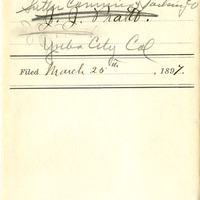 Sutter Canning & Packing Co
J. J. Pratt.
Yuba City Cal
Filed March 25th, 1897.